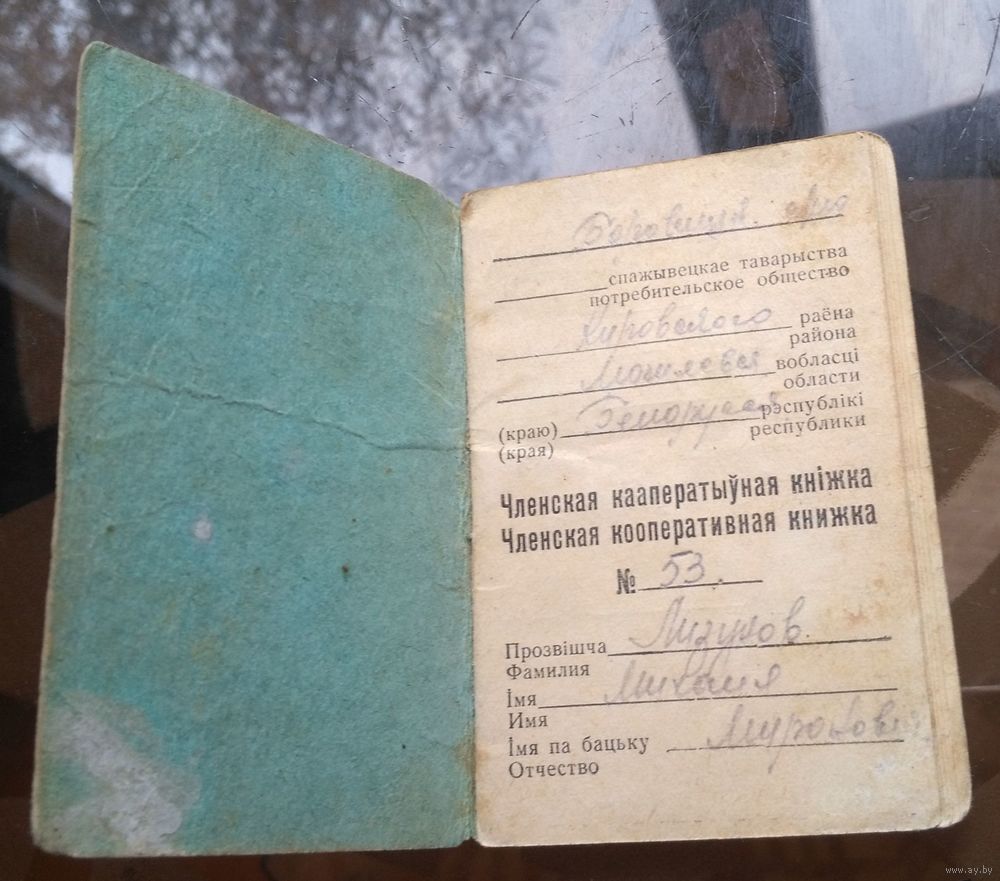 спажывецкае таварыства
потребительское общество
Кировского раёна
района
вобласці
области
(краю) рэспублікі
(края) республики
Членская кааператыўная кніжка
Членская кооперативная книжка
№ 53.
Прозвішча Лизунов
Фамилия
Імя
Имя
Імя па бацьку
Отчество
www.ay.by